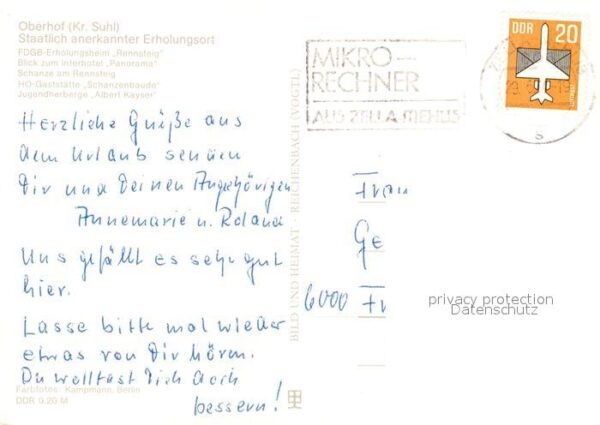 Oberhof (Kr. Suhl)
Staatlich anerkannter Erholungsort
FDGB-Erholungsheim „Rennsteig"
Blick zum Interhotel „Panorama"
Schanze am Rennsteig
HO-Gaststätte „Schanzenbaude"
Jugendherberge „Albert Kayser"
MIKRO-
RECHNER
AUS ZELLA-MEHLIS
DDR 20
Herzliche Grüße aus
dem Urlaub senden
Dir und Deinen Angehörigen
Annemarie u. Roland
Uns gefällt es sehr gut
hier.
Lasse bitte mal wieder
etwas von Dir hören.
Du wolltest Dich doch
bessern!
Farbfotos: Kampmann, Berlin
DDR 0,20 M
BILD UND HEIMAT REICHENBACH (VOGTL)
Frau
Ge
6000 Fr
privacy protection
Datenschutz